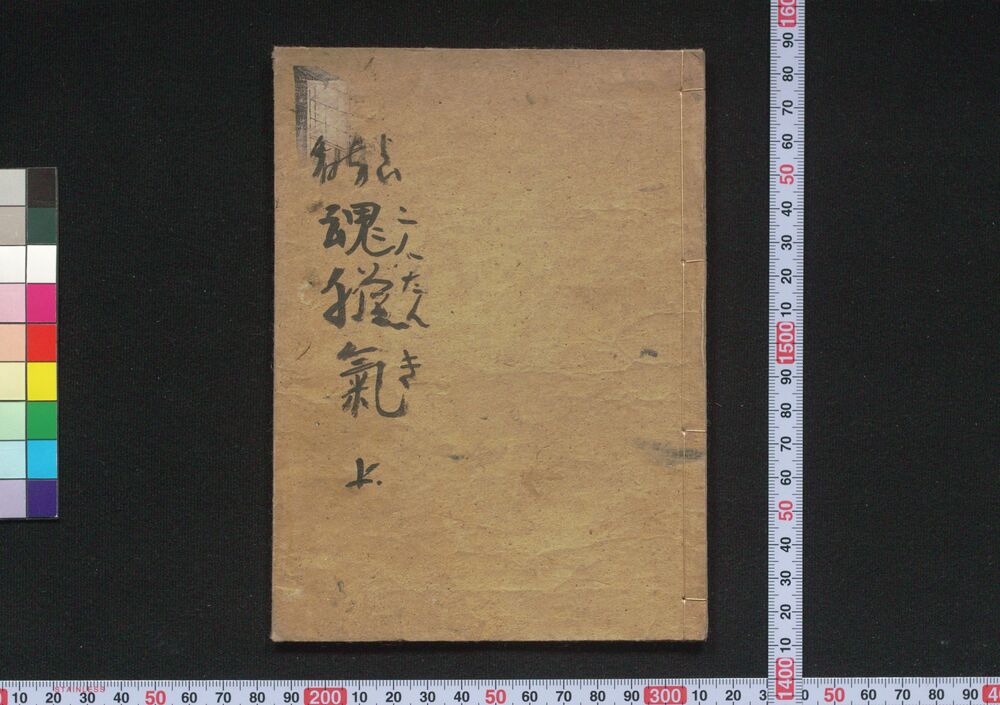 魂膽氣
こんたんき
上
160
90
80
70
60
50
40
30
20
10
1500
90
80
70
60
50
40
30
20
10
1400
10 20 30 40 50 60 70 80 90 200 10 20 30 40 50 60 70 80 90 300 10 20 50 60 70 80 90
STAINLESS